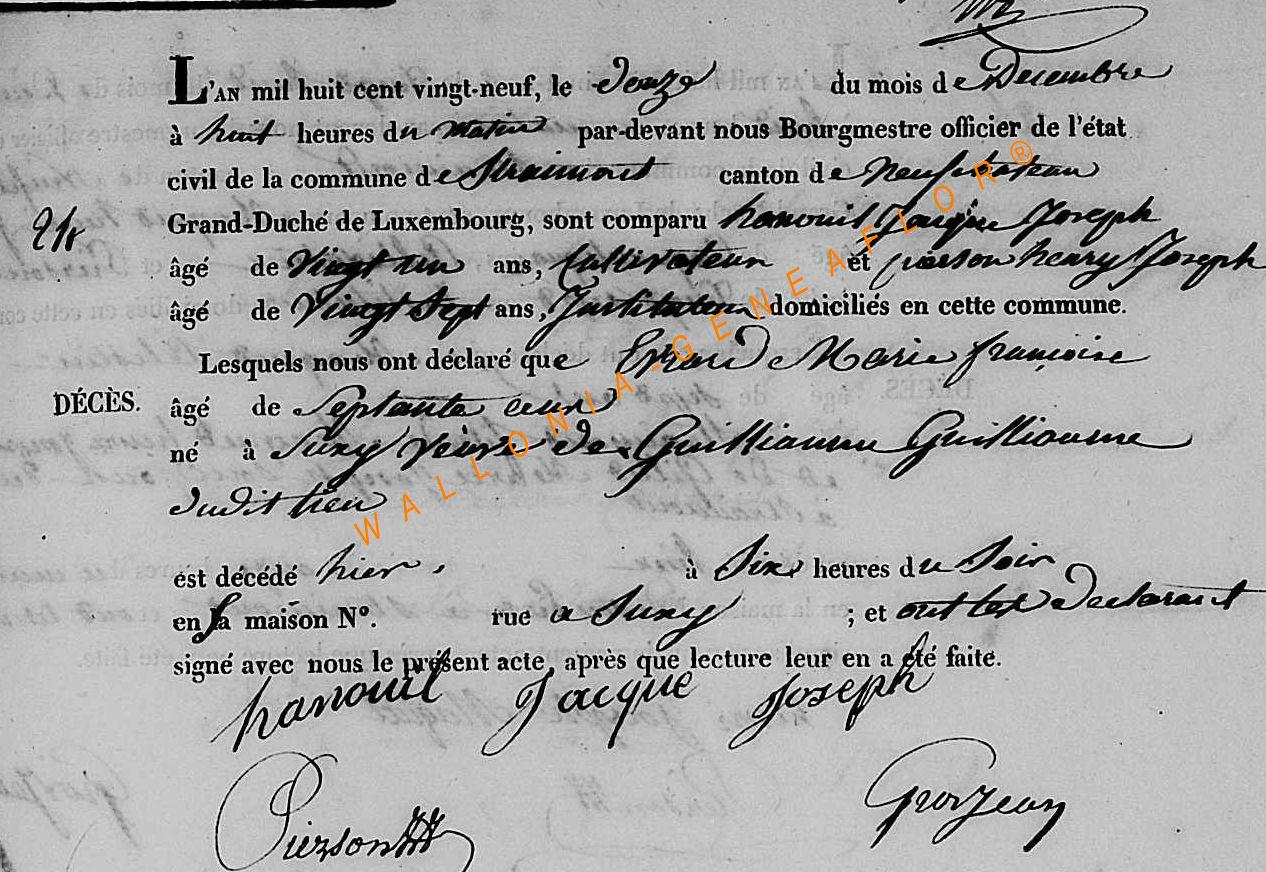 L'AN mil huit cent vingt-neuf, le Douze du mois de Decembre
à huit heures du matin par-devant nous Bourgmestre officier de l'état
civil de la commune de Straimont canton de Neufchateau
Grand-Duché de Luxembourg, sont comparu hanouil Jacque Joseph
âgé de Vingt un ans, Cultivateur et pierson henry Joseph
âgé de Vingt Sept ans, Instituteur domiciliés en cette commune.
Lesquels nous ont déclaré que Marie françoise
DÉCÈS.
âgé de Septante
né à Suxy veuve de Guilliaume Guilliaume
dudit lieu
est décédé hier, à Six heures du Soir
en Sa maison N°. rue a Suxy ; et ont les declarant
signé avec nous le présent acte, après que lecture leur en a été faite.
hanouil Jacque Joseph
Pierson
Grosjean
WALLONIA-GENEAFLOR®